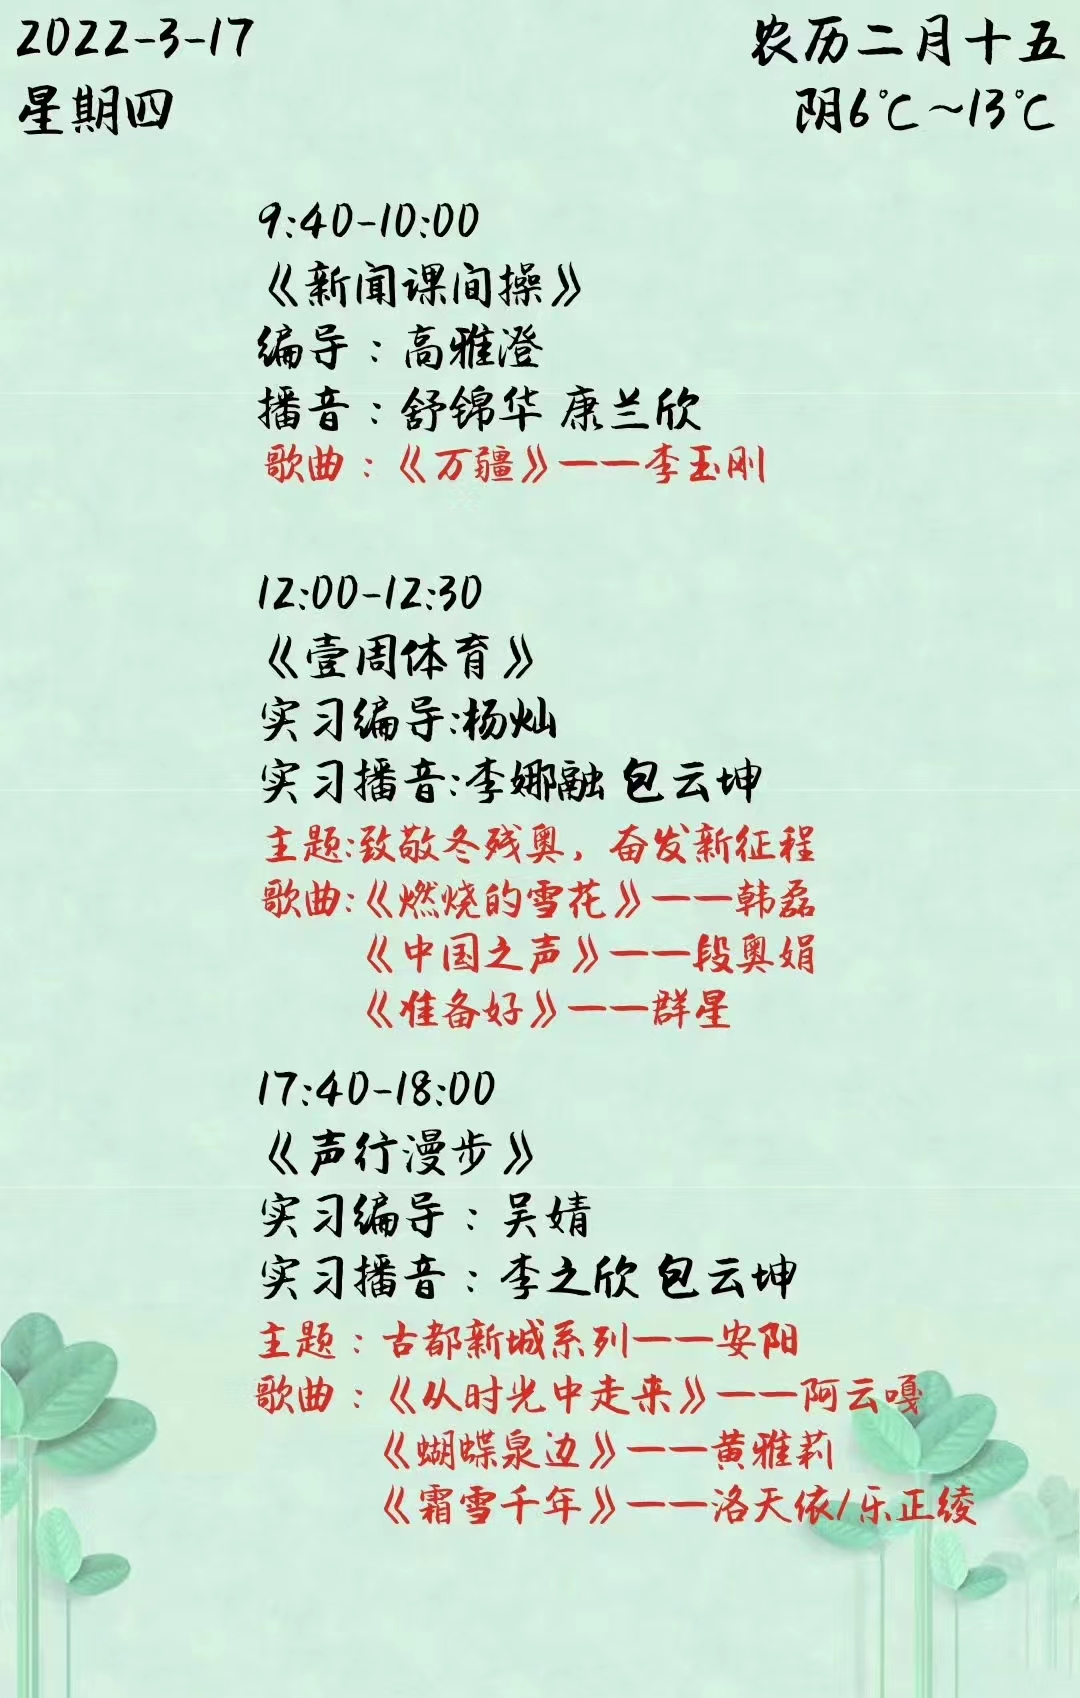 2022-3-17
农历二月十五
星期四
阴6℃~13℃
9:40-10:00
《新闻课间操》
编导：高雅澄
播音：舒锦华 康兰欣
歌曲：《万疆》——李玉刚
12:00-12:30
《壹周体育》
实习编导:杨灿
实习播音:李娜融 包云坤
主题:致敬冬残奥，奋发新征程
歌曲:《燃烧的雪花》——韩磊
《中国之声》——段奥娟
《准备好》——群星
17:40-18:00
《声行漫步》
实习编导：吴婧
实习播音：李之欣 包云坤
主题：古都新城系列——安阳
歌曲：《从时光中走来》——阿云嘎
《蝴蝶泉边》——黄雅莉
《霜雪千年》——洛天依/乐正绫